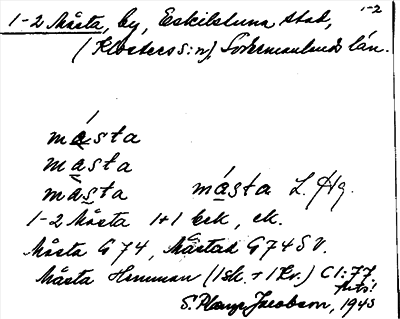 1-2 Måsta, by, Eskilstuna stad, 1-2
(Klosters s:n), Södermanlands län.
másta
masta
màsta másta L. Hg.
1-2 Måsta 1+1 bsk, ek.
Måsta G 74, Måstad G 74 SV.
Måsta Hemman (1 sk. + 1 Kr.) C 1:77
S. Jacobson, 1943